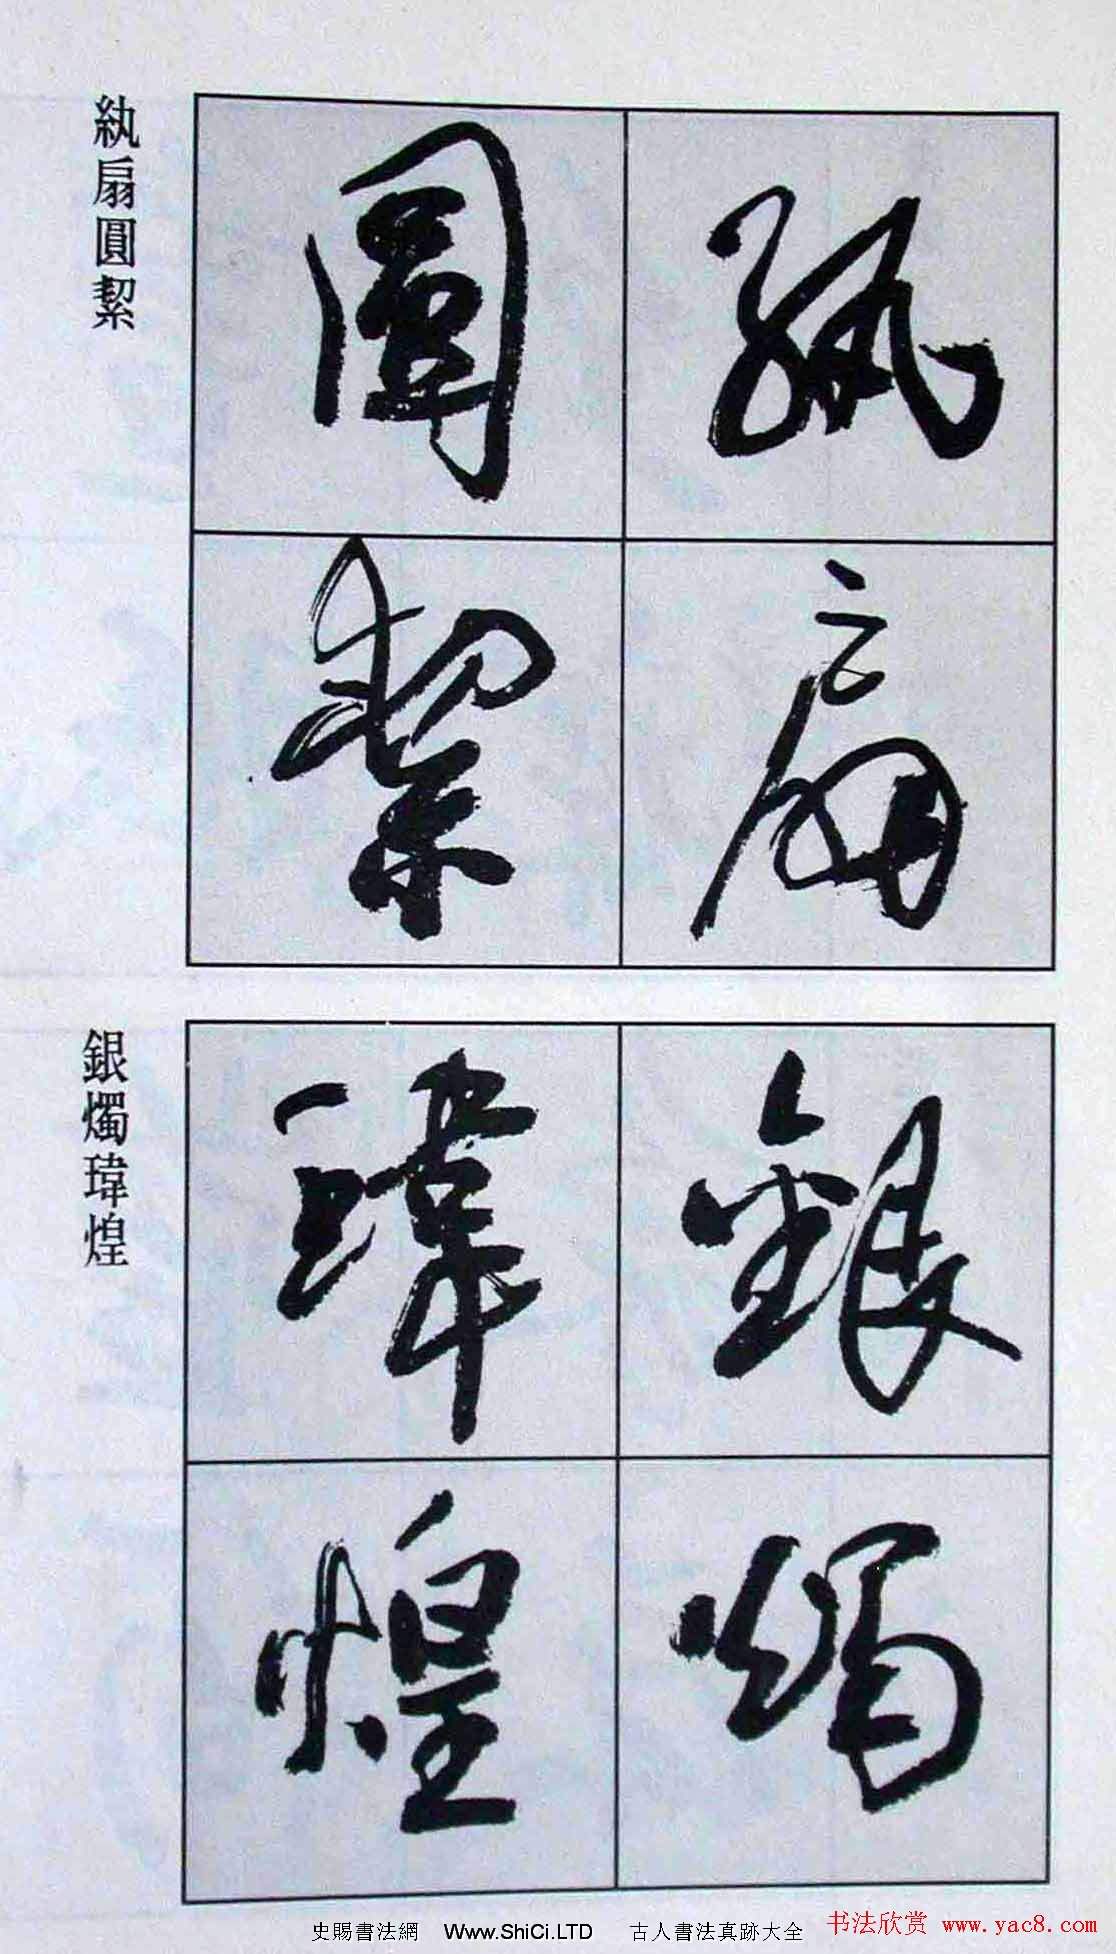 紈扇圓絜
紈扇
圓絜
銀燭瑋煌
銀燭
瑋煌
史賜書法網 Www.ShiCi.LTD 古人書法真跡大全
书法欣赏 www.yac8.com